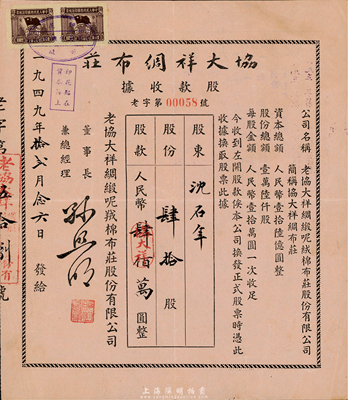 協大祥綢布莊
股款收據
老字第00058號
公司名稱 老協大祥綢緞呢羢棉布莊股份有限公司
簡稱協大祥綢布莊
資本總額 人民幣壹拾陸億圓整
股份總額 壹萬陸仟股
每股金額 人民幣壹拾萬圓一次收足
今收到左開股款俟本公司換發正式股票時憑此
收據換取股票此據
股東 沈石年
股份 肆拾股
股款 人民幣肆佰萬圓整
老協大祥綢緞呢羢棉布莊股份有限公司
董事長
兼總經理
一九四九年拾貳月念六日 發給